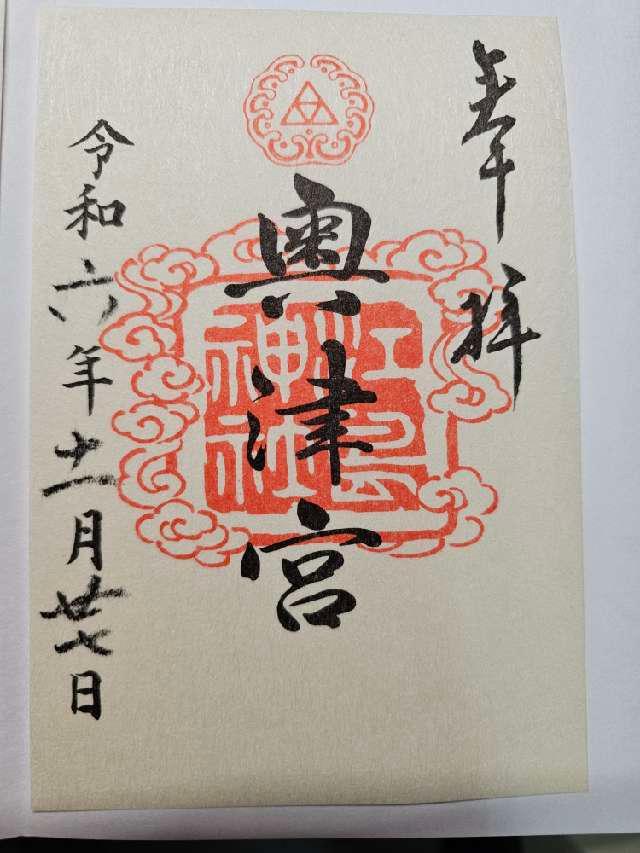 奉拝
奥津宮
江島神社
令和六年十一月廿七日